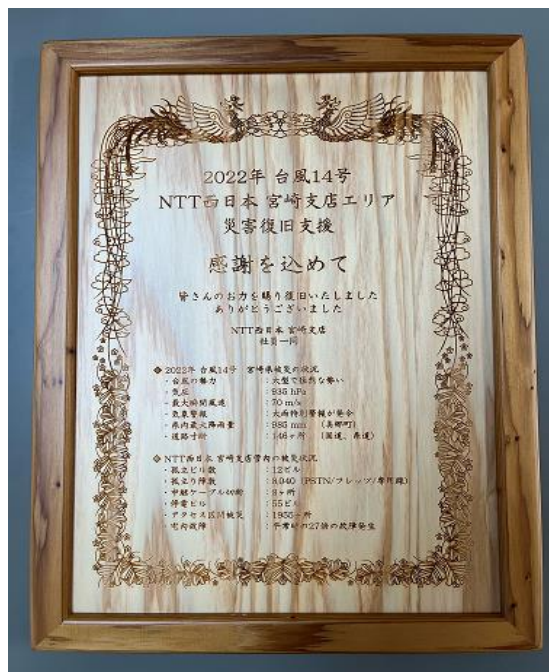 2022年 台風14号
NTT西日本 宮崎支店エリア
災害復旧支援
感謝を込めて
皆さんのお力を賜り復旧いたしました
ありがとうございました
NTT西日本 宮崎支店
社員一同
◆ 2022年 台風14号 宮崎県被災の状況
・台風の勢力 :大型で猛烈な勢い
・気圧 :935 hPa
・最大瞬間風速 :70 m/s
・気象警報 :大雨特別警報が発令
・県内最大降雨量 :985 mm (美郷町)
・道路寸断 :146ヶ所 (国道、県道)
◆ NTT西日本 宮崎支店管内の被災状況
・孤立ビル数 :12ビル
・孤立り障数 :8,040 (PSTN/フレッツ/専用線)
・中継ケーブル切断 :9ヶ所
・停電ビル :55ビル
・アクセス区間被災 :1955ヶ所
・宅内故障 :平常時の27倍の故障発生